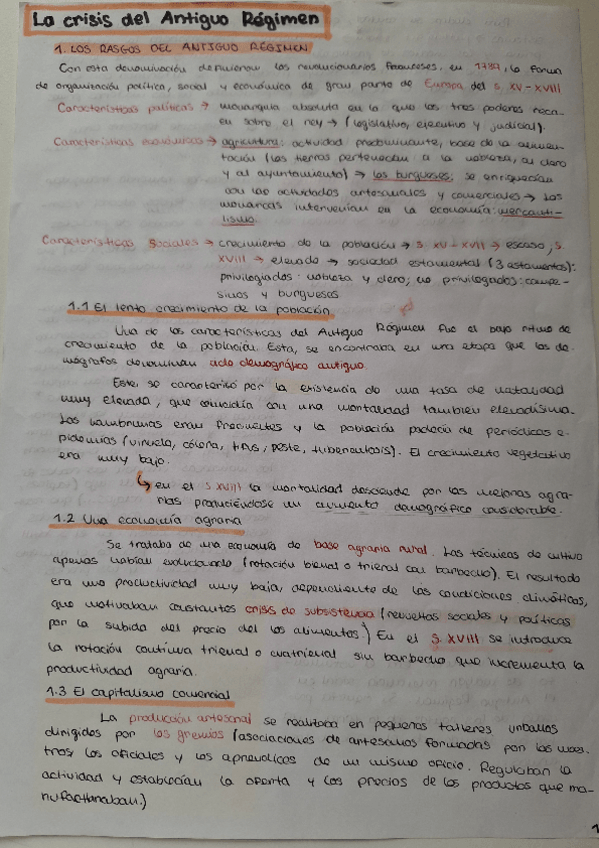 La crisis del Antiguo Régimen
1. LOS RASGOS DEL ANTIGUO RÉGIMEN
Con esta denominación definieron los revolucionarios franceses, en 1789, la forma
de organización política, social y económica de gran parte de Europa del s. XV - XVIII
Características políticas → monarquía absoluta en la que los tres poderes reca-
en sobre el rey → (legislativo, ejecutivo y judicial).
Características económicas → agricultura: actividad predominante, base de la alimen-
tación (las tierras pertenecían a la nobleza, al clero
y al ayuntamiento) → los burgueses: se enriquecían
con las actividades artesanales y comerciales → los
monarcas intervenían en la economía: mercanti-
lismo.
Características Sociales → crecimiento de la población → s. XV - XVII → escaso, s.
XVIII → elevado → sociedad estamental (3 estamentos):
privilegiados: nobleza y clero; no privilegiados: campe-
sinos y burgueses
1.1 El lento crecimiento de la población
Una de las características del Antiguo Régimen fue el bajo ritmo de
crecimiento de la población. Esta, se encontraba en una etapa que los de-
mógrafos denominan ciclo demográfico antiguo.
Este, se caracterizó por la existencia de una tasa de natalidad
muy elevada, que coincidía con una mortalidad tambien elevadísima.
Las hambrunas eran frecuentes y la población padecía de periódicas e-
pidemias (viruela, cólera, tifus, peste, tuberculosis). El crecimiento vegetativo
era muy bajo.
↳ en el s. XVIII la mortalidad desciende por las mejoras agra-
rias produciéndose un aumento demográfico considerable.
1.2 Una economía agraria
Se trataba de una economía de base agraria rural. Las técnicas de cultivo
apenas habían evolucionado (rotación bienal o trienal con barbecho). El resultado
era una productividad muy baja, dependiente de las condiciones climáticas,
que motivaban constantes crisis de subsistencia (revueltas sociales y políticas
por la subida del precio del los alimentos.) En el s. XVIII se introduce
la rotación continua trienal o cuatrienal sin barbecho que incrementa la
productividad agraria.
1.3 El capitalismo comercial
La producción artesanal se realizaba en pequeños talleres urbanos
dirigidos por los gremios (asociaciones de artesanos formados por los maes-
tros, los oficiales y los aprendices de un mismo oficio. Regulaban la
actividad y establecían la oferta y los precios de los productos que ma-
nufacturaban.)
1